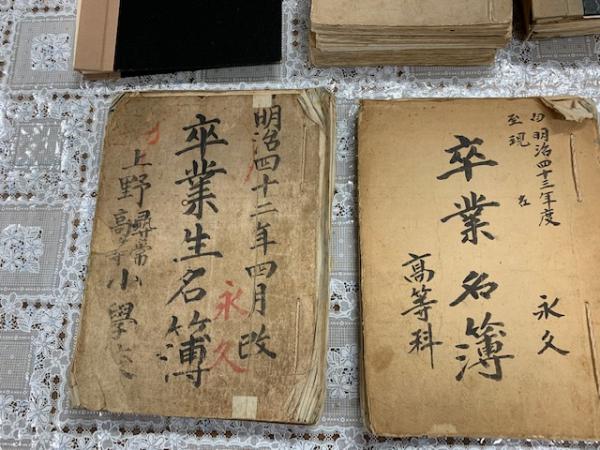 明治四十二年四月改
永久
卒業生名簿
上野尋常高等小學校
自明治四十三年度
至現在
永久
卒業名簿
高等科